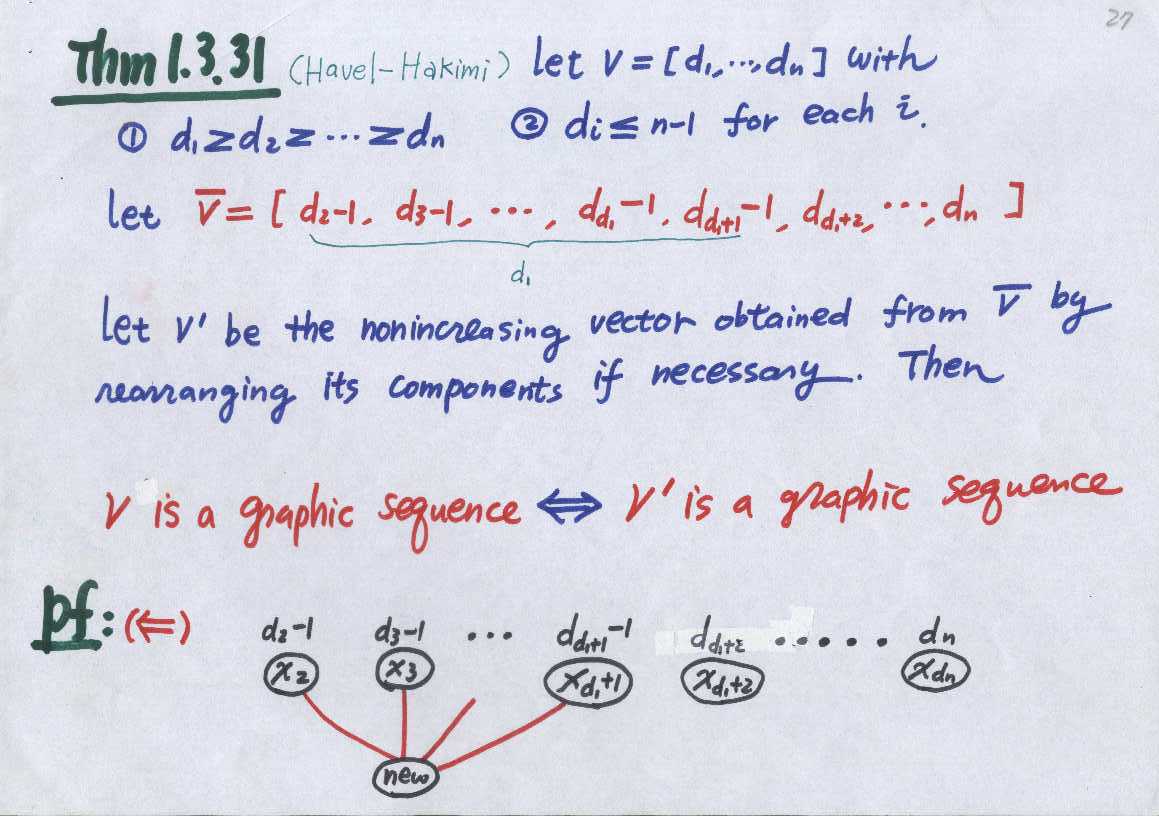 27
Thm 1.3.31 (Havel-Hakimi) let V = [d₁, ..., dₙ] with
① d₁ ≥ d₂ ≥ ... ≥ dₙ ② dᵢ ≤ n-1 for each i.
let V̅ = [ d₂-1, d₃-1, ..., d_{d₁}-1, d_{d₁+1}-1, d_{d₁+2}, ..., dₙ ]
d₁
let V' be the nonincreasing vector obtained from V̅ by
rearranging its components if necessary. Then
V is a graphic sequence ⟺ V' is a graphic sequence
pf: (⇐) d₂-1 d₃-1 ... d_{d₁+1}-1 d_{d₁+2} ..... dₙ
x₂ x₃ x_{d₁+1} x_{d₁+2} x_{dₙ}
new